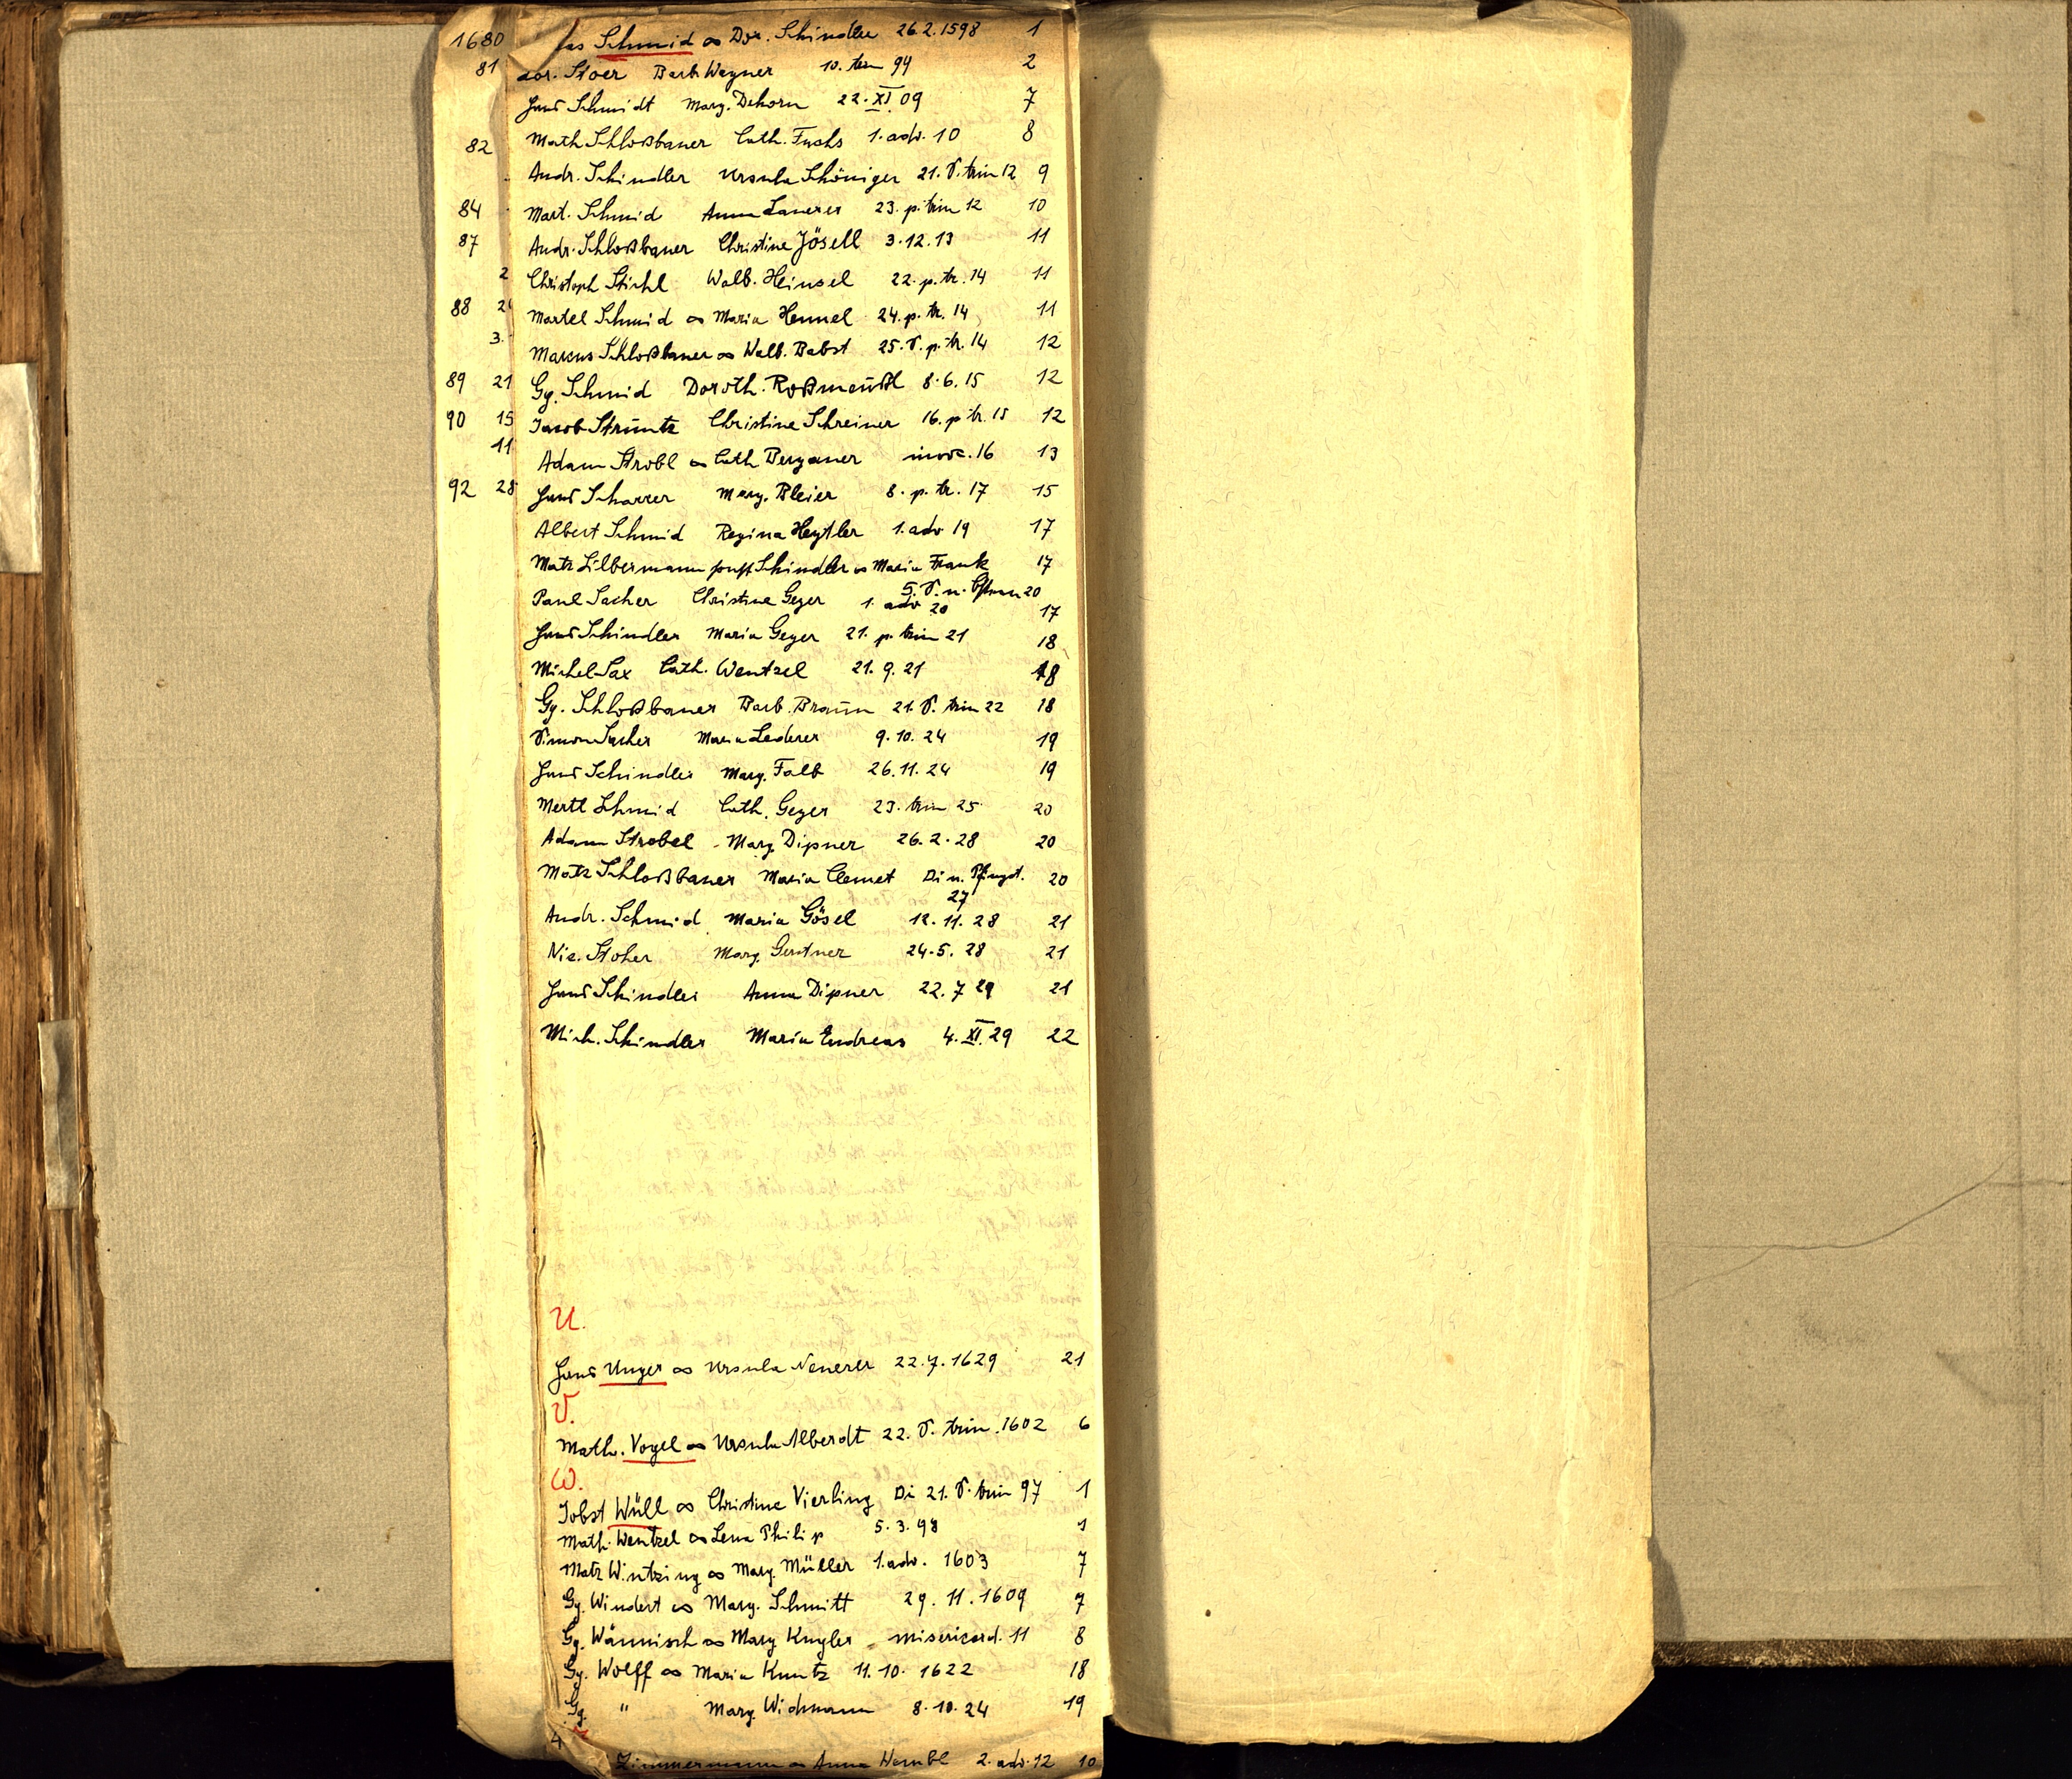 1680 as Schmid ∞ Dor. Schindler 26.2.1598 1
81 dor. Stoer Barb. Wagner 10. trin 94 2
Hans Schmidt Marg. Dehorn 22. XI. 09 7
82 Math Schloßbauer Cath. Fuchs 1. adv. 10 8
Andr. Schindler Ursula Schöniger 21. S. trin 12 9
84 Mart. Schmid Anna Lauerer 23. p. trin 12 10
87 Andr. Schloßbauer Christine Jösell 3.12.13 11
2 Christoph Stichl Walb. Heinsel 22. p. tr. 14 11
88 2 Martel Schmid ∞ Maria Hennel 24. p. tr. 14 11
3. Marcus Schloßbauer ∞ Walb. Babst 25. S. p. tr. 14 12
89 21 Gg. Schmid Doroth. Roßmeußl 8.6.15 12
90 15 Jacob Strüntz Christine Schreiner 16. p tr. 15 12
11 Adam Strobl ∞ Cath Bergauer invoc. 16 13
92 28 Hans Scharrer Marg. Bleier 8. p. tr. 17 15
Albert Schmid Regina Heytler 1. adv 19 17
Matz Silbermann sonst Schindler ∞ Maria Frank 17
5. S. n. Ostern 20
Paul Sacher Christine Geyer 1. adv 20 17
Hans Schindler Maria Geyer 21. p. trin 21 18
Michel Sax Cath. Wentzel 21.9.21 18
Gg. Schloßbauer Barb. Braun 21. S. trin 22 18
Simon Sacher Maria Lederer 9.10.24 19
Hans Schindler Marg. Falb 26.11.24 19
Mertl Schmid Cath. Geyer 23. trin 25 20
Adam Strobel Marg. Dipner 26.2.28 20
Matz Schloßbauer Maria Clemet Di n. Pfingst. 20
27
Andr. Schmid Maria Gösel 12.11.28 21
Nic. Stoher Marg. Gentner 24.5.28 21
Hans Schindler Anna Dipner 22.7 29 21
Mich. Schindler Maria Endreas 4. XI. 29 22
U.
Hans Unger ∞ Ursula Neuerer 22.7.1629 21
V.
Math. Vogel ∞ Ursula Alberdt 22. S. trin. 1602 6
W.
Jobst Wüll ∞ Christine Vierling Di 21. S. trin 97 1
Math. Wentzel ∞ Lena Philip 5.3.98 1
Matz Wintzing ∞ Marg. Müller 1. adv. 1603 7
Gg. Windert ∞ Marg. Schmitt 29.11.1609 7
Gg. Wännisch ∞ Marg Kugler misericord. 11 8
Gg. Wolff ∞ Maria Kuntz 11.10.1622 18
Gg. " Marg. Widmann 8.10.24 19
Zimmermann ∞ Anna 2. adv. 12 10